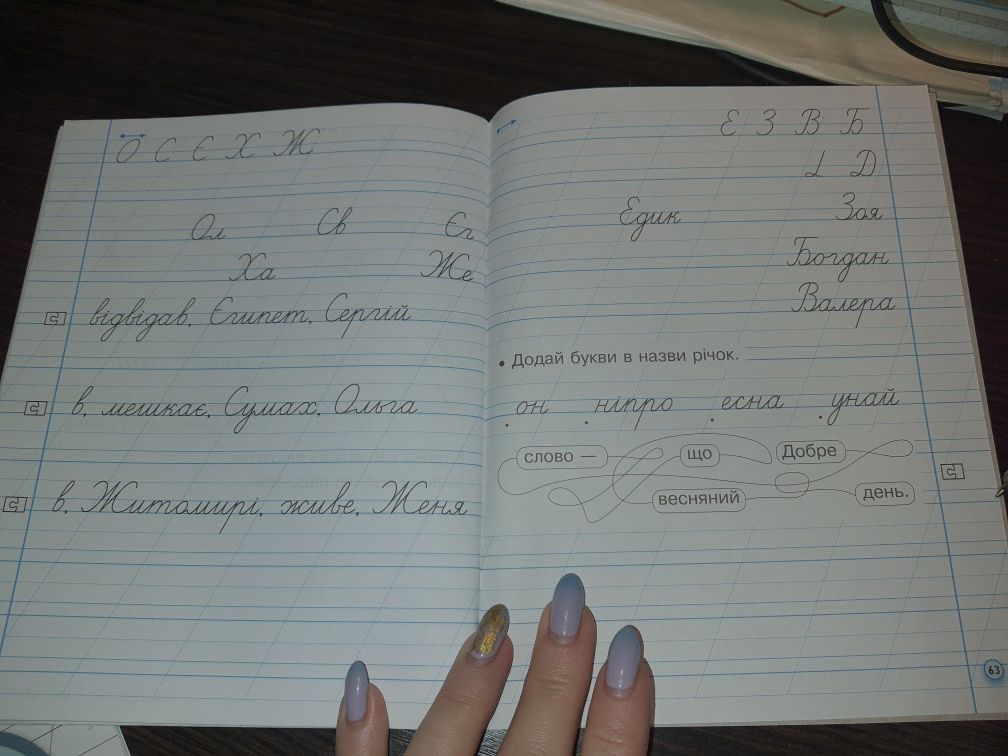 О С Є Х Ж
Ол Св Єг
Ха Же
відвідав, Єгипет, Сергій
в, мешкає, Сумах, Ольга
в, Житомирі, живе, Женя
Е З В Б
І D
Едик Зоя
Богдан
Валера
• Додай букви в назви річок.
он ніпро есна унай
слово — що Добре
весняний день.
63